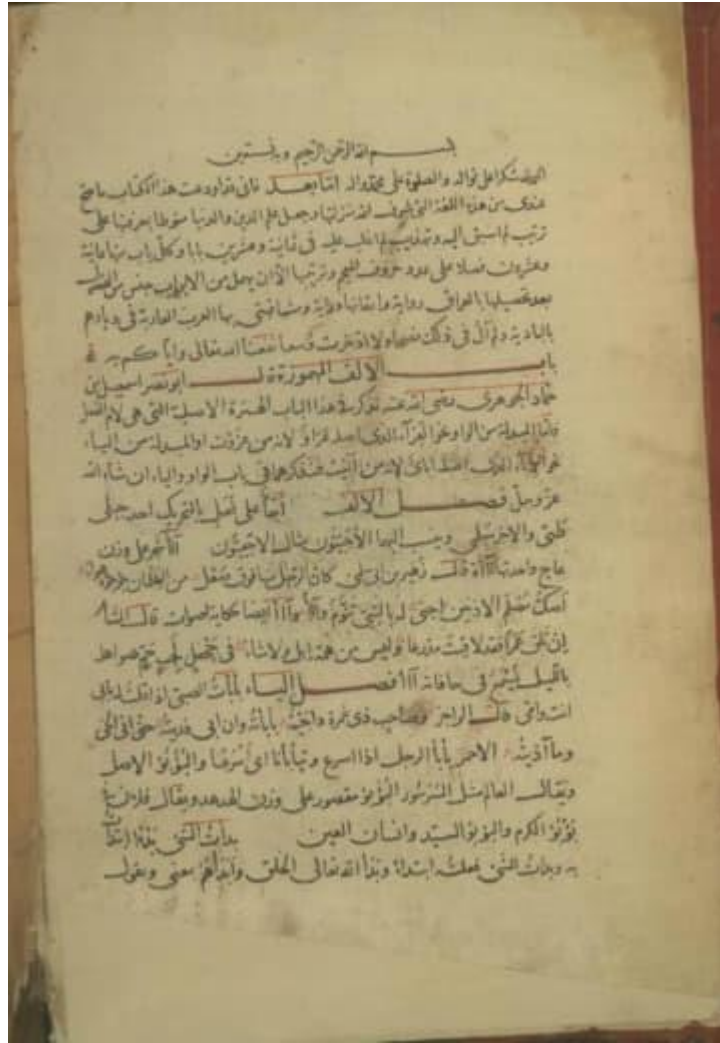 بسم الله الرحمن الرحيم وبه نستعين
الحمد لله شكرا على نواله والصلوة على محمد واله اما بعد فانى قد اودعت هذا الكتاب ما صح
عندى من هذه اللغة التى شرف الله منزلتها وجعل علم الدين والدنيا منوطا بمعرفتها على
ترتيب لم اسبق اليه وتهذيب لم اغلب عليه فى ثمانية وعشرين بابا وكل باب منها ثمانية
وعشرون فصلا على عدد حروف المعجم وترتيبها الا ان يهمل من الابواب جنس من الفصول
بعد تحصيلها بالعراق رواية واتقانها دراية ومشافهتى بها العرب العاربة فى ديارهم
بالبادية ولم آل فى ذلك نصحا ولا ادخرت وسعا نفعنا الله تعالى واياكم به
باب الالف المهموزة قال ابو نصر اسمعيل بن
حماد الجوهرى رضى الله عنه نذكر فى هذا الباب الهمزة الاصلية التى هى لام الفعل
فاما المبدلة من الواو نحو العزآء الذى اصله عزاو لانه من عزوت او المبدلة من الياء
نحو الاباء الذى اصله اباى لانه من ابيت فنذكرهما فى باب الواو والياء ان شاء الله
عز وجل فصل الالف أجأ على فعل بالتحريك احد جبلى
طيئ والاخر سلمى وينسب اليهما الأجئيون مثال الاجعيون آأ شجر على وزن
عاع واحدتها آأة قال زهير بن ابى سلمى كان الرحل منها فوق صعل من الظلمان جؤجؤه هواء
أصك مصلم الاذنين اجنى له بالسى تنوم وآأ وآأ ايضا حكاية اصوات قال الشاعر
إن تلق عمرا فقد لاقيت مدرعا وليس من همه ابل ولا شاء فى جحفل لجب جم صواهله
بالليل يسمع فى حافاته آأ فصل الباء بأبأت الصبى اذا قلت له بابى
انت وامى قال الراجز وصاحب ذى غمرة داجيته بابأته وان ابى فديته حتى اتى الحى
وما آذيته الاحمر بأبأ الرجل اذا اسرع وتبأبأنا اى اسرعنا والبؤبؤ الاصل
ويقال العالم مثل السرسور البؤبؤ مقصور على وزن الهدهد ويقال فلان فى
بؤبؤ الكرم والبؤبؤ السيد وانسان العين بدأت الشئ بدءا ابتدأت
به وبدأت الشئ فعلته ابتداء وبدأ الله تعالى الخلق وابدأهم بمعنى وتقول